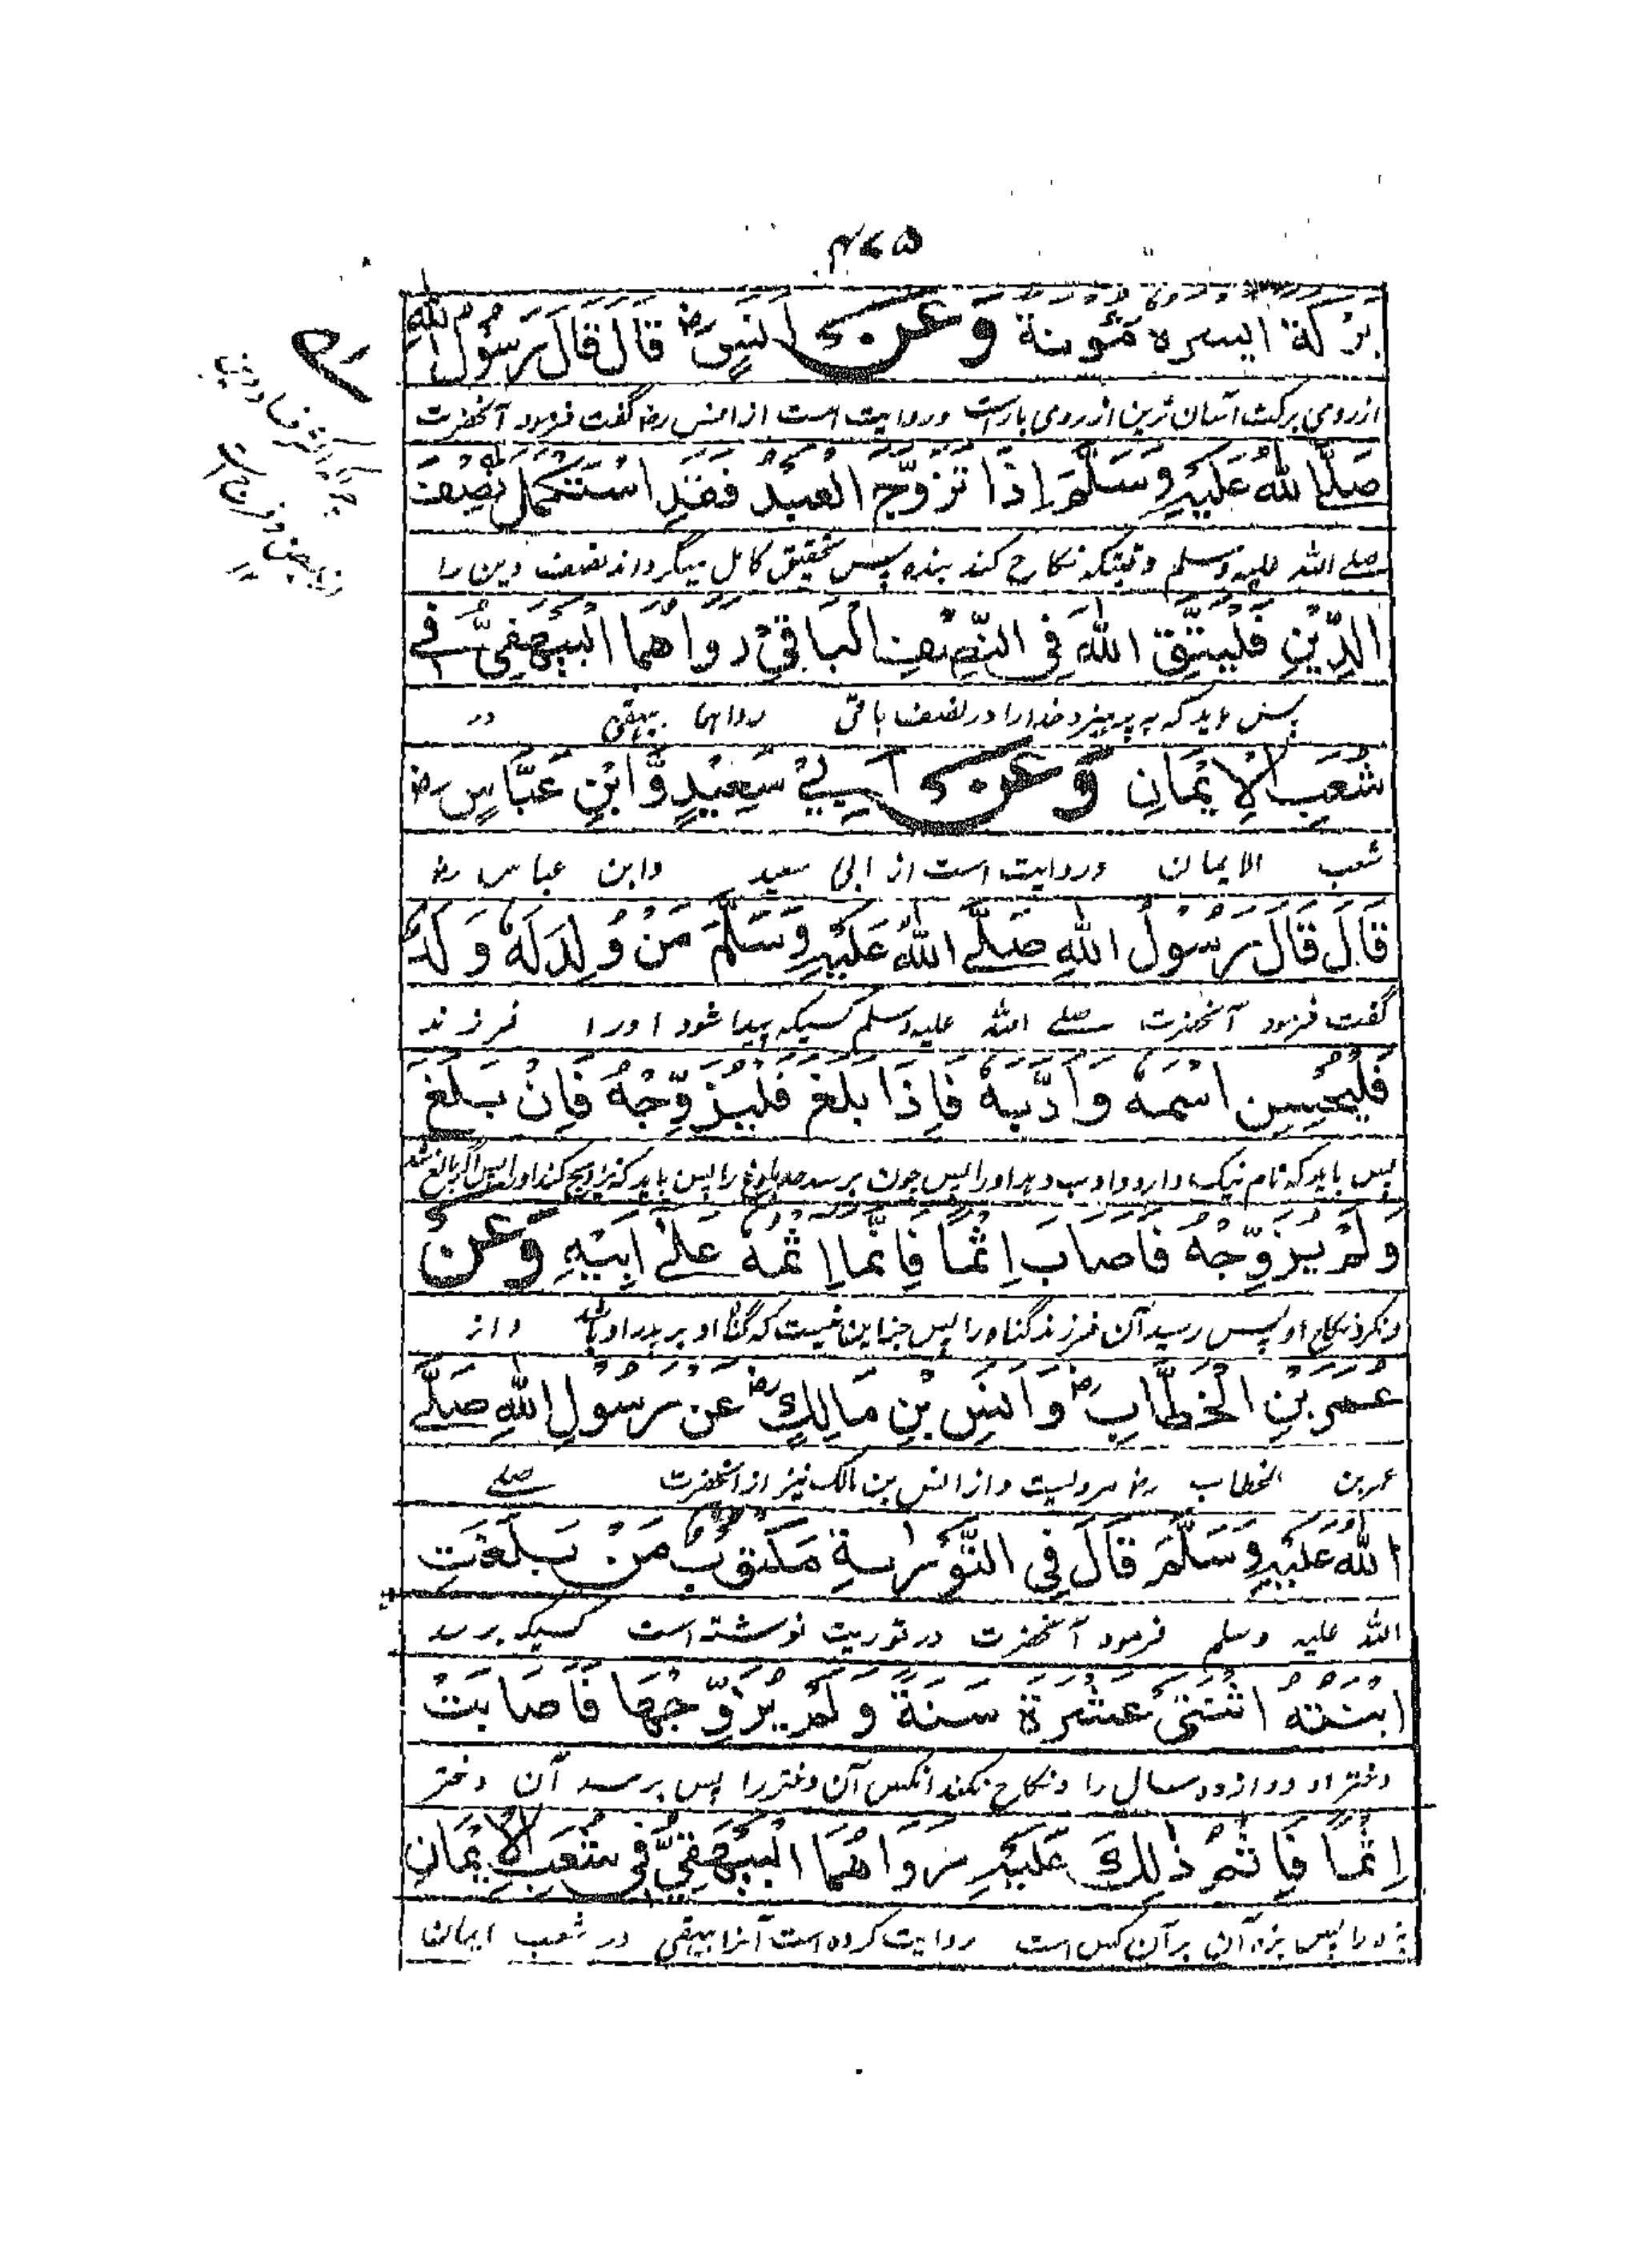 ۴۷۵
بَرَكَةً أَيْسَرُهُ مَؤُنَةً وَعَنْ اَنَسٍ رض قَالَ قَالَ رَسُوْلُ اللهِ
ازروی برکت آسان ترین ازروی بارست وروایت است از انس رض گفت فرمود آنحضرت
صَلَّى اللهُ عَلَيْهِ وَسَلَّمَ اِذَا تَزَوَّجَ الْعَبْدُ فَقَدِ اسْتَكْمَلَ نِصْفَ
صلے اللہ علیہ وسلم وقتیکہ نکاح کند بندہ پس تحقیق کامل میگرداند نصف دین را
الدِّيْنِ فَلْيَتَّقِ اللهَ فِى النِّصْفِ الْبَاقِىْ رَوَاهُمَا الْبَيْهَقِىُّ فِے
پس باید کہ بپرہیزد خدارا در نصف باقی رواہما بیہقی در
شُعَبِ الْاِيْمَانِ وَعَنْ اَبِىْ سَعِيْدٍ وَّابْنِ عَبَّاسٍ رض
شعب الایمان وروایت است از ابی سعید وابن عباس رض
قَالَ قَالَ رَسُوْلُ اللهِ صَلَّے اللهُ عَلَيْهِ وَسَلَّمَ مَنْ وُلِدَ لَهٗ وَلَدٌ
گفت فرمود آنحضرت صلے اللہ علیہ وسلم کسیکہ پیدا شود اورا فرزند
فَلْيُحْسِنِ اسْمَهٗ وَاَدَّبَهٗ فَاِذَا بَلَغَ فَلْيُزَوِّجْهُ فَاِنْ بَلَغَ
پس باید کہ نام نیک دارد وادب دہد اورا پس چون برسد بلوغ را پس باید کہ تزویج کند اورا پس اگر بالغ شد
وَلَمْ يُزَوِّجْهُ فَاَصَابَ اِثْمًا فَاِنَّمَا اِثْمُهٗ عَلٰے اَبِيْهِ وَعَنْ
ونکرد نکاح او پس رسید آن فرزند گناہ را پس جز این نیست کہ گناہ او بر پدر او باشد واز
عُمَرَ بْنِ الْخَطَّابِ رض وَاَنَسِ بْنِ مَالِكٍ رض عَنْ رَسُوْلِ اللهِ صَلَّے
عمر بن الخطاب رض مرویست واز انس بن مالک نیز از آنحضرت صلے
اللهُ عَلَيْهِ وَسَلَّمَ قَالَ فِى التَّوْرٰىةِ مَكْتُوْبٌ مَنْ بَلَغَتِ
اللہ علیہ وسلم فرمود آنحضرت در توریت نوشتہ است کسیکہ برسد
ابْنَتُهُ اثْنَتَىْ عَشْرَةَ سَنَةً وَلَمْ يُزَوِّجْهَا فَاَصَابَتْ
دختر او دوازدہ سال را ونکاح نکند آنکس آن دختر را پس برسد آن دختر
اِثْمًا فَاِثْمُ ذٰلِكَ عَلَيْهِ رَوَاهُمَا الْبَيْهَقِىُّ فِى شُعَبِ الْاِيْمَانِ
بزہ را پس بزہ آن بر آن کس است روایت کردہ است آنرا بیہقی در شعب ایمان